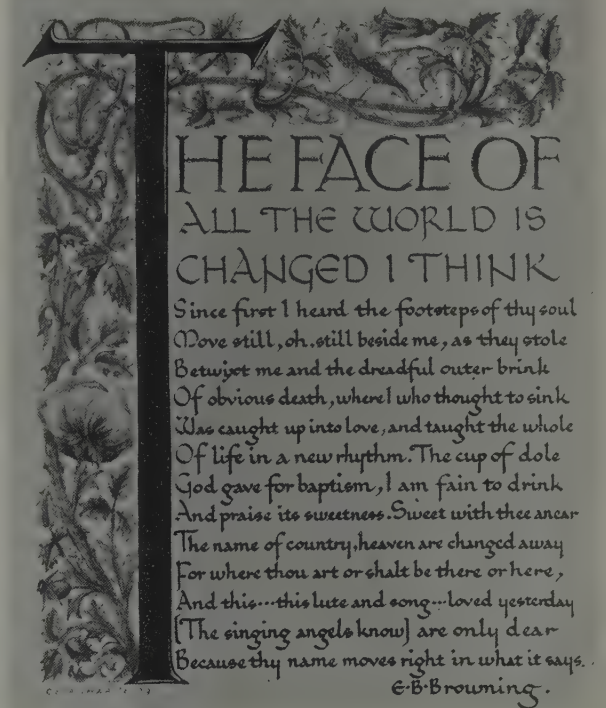 THE FACE OF
ALL THE WORLD IS
CHANGED I THINK
Since first I heard the footsteps of thy soul
Move still, oh, still beside me, as they stole
Betwixt me and the dreadful outer brink
Of obvious death, where I who thought to sink
Was caught up into love, and taught the whole
Of life in a new rhythm. The cup of dole
God gave for baptism, I am fain to drink
And praise its sweetness. Sweet with thee anear
The name of country, heaven are changed away
For where thou art or shalt be there or here,
And this...this lute and song...loved yesterday
[The singing angels know] are only dear
Because thy name moves right in what it says.
E·B·Browning.